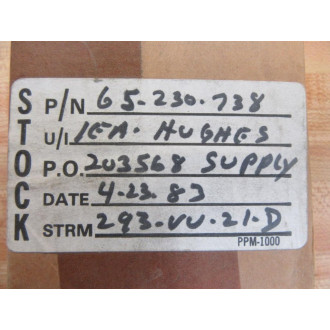 STOCK
P/N 65-230-738
U/I 1EA. HUGHES
P.O. 203568 SUPPLY
DATE 4-23-83
STRM 293-VV-21-D
PPM-1000